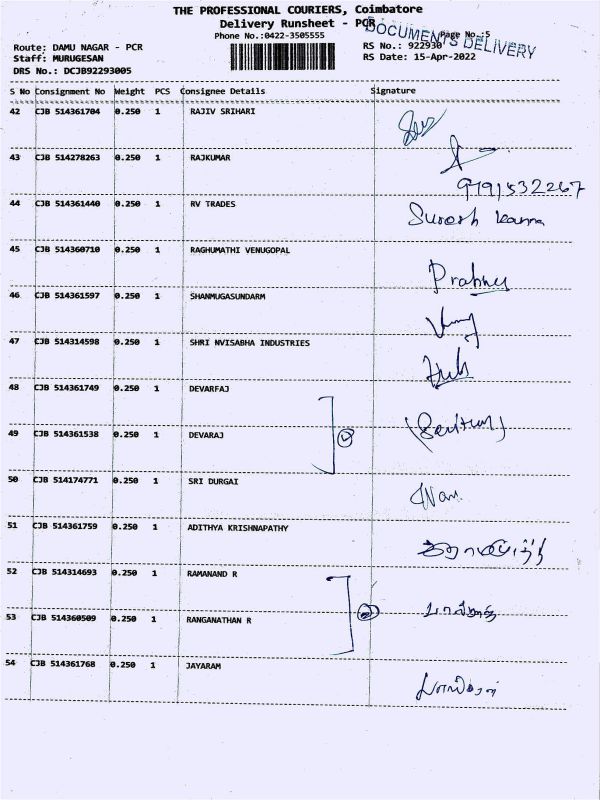 THE PROFESSIONAL COURIERS, Coimbatore
Delivery Runsheet - PCR
DOCUMENTS DELIVERY
Phone No.:0422-3505555
Page No.:5
Route: DAMU NAGAR - PCR
RS No.: 922930
Staff: MURUGESAN
RS Date: 15-Apr-2022
DRS No.: DCJB92293005
S No Consignment No Weight PCS Consignee Details Signature
42 CJB 514361704 0.250 1 RAJIV SRIHARI
43 CJB 514278263 0.250 1 RAJKUMAR
9791532267
44 CJB 514361440 0.250 1 RV TRADES
Suresh Kanna
45 CJB 514360710 0.250 1 RAGHUMATHI VENUGOPAL
Prabhu
46 CJB 514361597 0.250 1 SHANMUGASUNDARM
47 CJB 514314598 0.250 1 SHRI NVISABHA INDUSTRIES
48 CJB 514361749 0.250 1 DEVARFAJ
49 CJB 514361538 0.250 1 DEVARAJ
50 CJB 514174771 0.250 1 SRI DURGAI
51 CJB 514361759 0.250 1 ADITHYA KRISHNAPATHY
52 CJB 514314693 0.250 1 RAMANAND R
53 CJB 514360509 0.250 1 RANGANATHAN R
54 CJB 514361768 0.250 1 JAYARAM